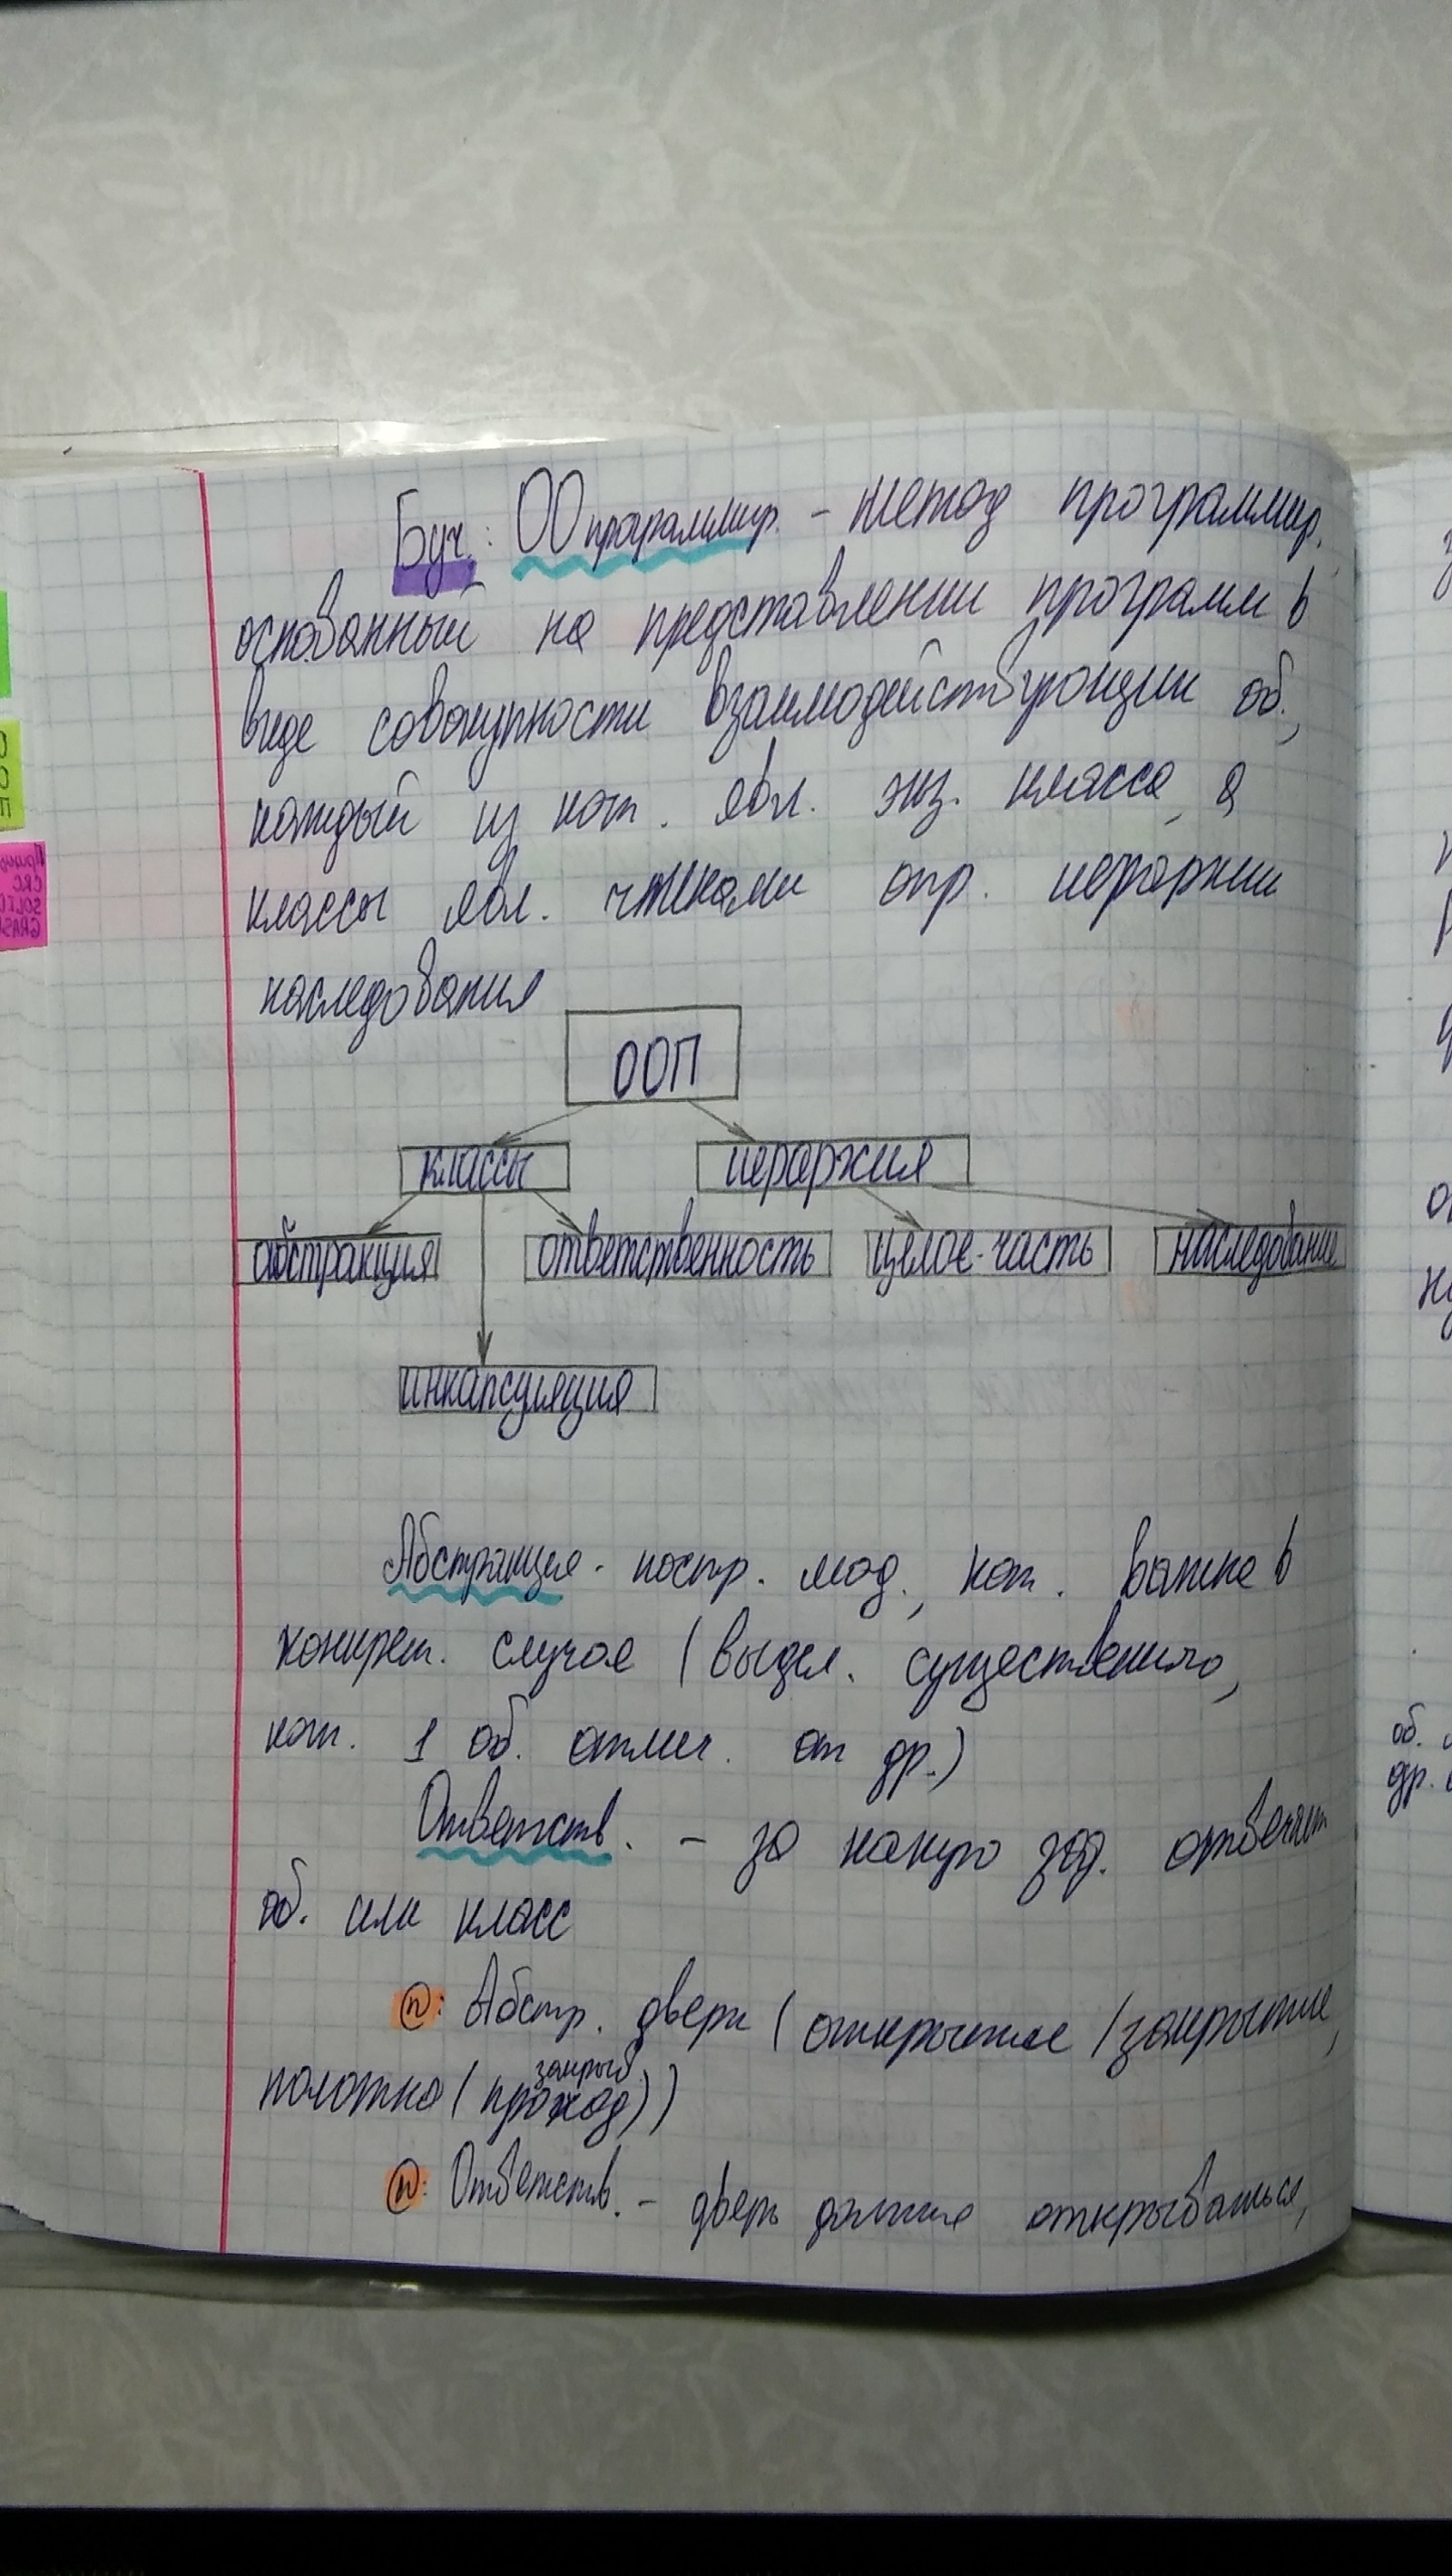 Буч: ОО программир. - метод программир.,
основанный на представлении программ в
виде совокупности взаимодействующих об.,
каждый из кот. явл. экз. класса, а
классы явл. членами опр. иерархии
наследования
ООП
классы иерархия
абстракция ответственность целое-часть наследование
инкапсуляция
Абстракция - постр. мод., кот. важна в
конкрет. случае (выдел. существенного,
кот. 1 об. отлич. от др.)
Ответств. - за какую зад. отвечает
об. или класс
п: Абстр. двери (открытие / закрытие,
полотно (закрыв. проход))
п: Ответств. - дверь должна открываться,
об.
др.
CRC
SOLID
GRASP